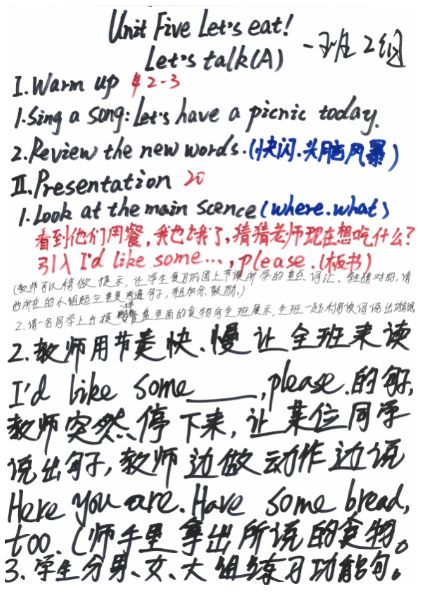 Unit Five Let's eat!
Let's talk(A) 一班2组
I.Warm up 2-3
1.Sing a song: Let's have a picnic today.
2.Review the new words.(快闪.头脑风暴)
II.Presentation 20
1.Look at the main scence(where.what)
看到他们用餐,我也饿了,猜猜老师现在想吃什么?
引入 I'd like some…,please.(板书)
(教师可以稍做提示,让学生复习巩固上节课所学的重点词汇,
2.请一名同学上台摸
2.教师用节奏快.慢让全班来读
I'd like some____,please.的句,
教师突然停下来,让某位同学
说出句子,教师边做动作边说
Here you are. Have some bread,
too.(师手里拿出所说的食物。
3.学生分男、女、大组练习功能句。